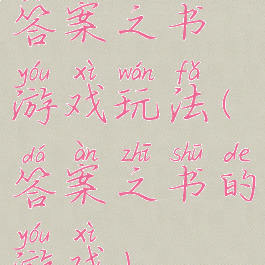 答案之书
yóu xì wán fǎ
游戏玩法(
dá àn zhī shū de
答案之书的
yóu xì
游戏)